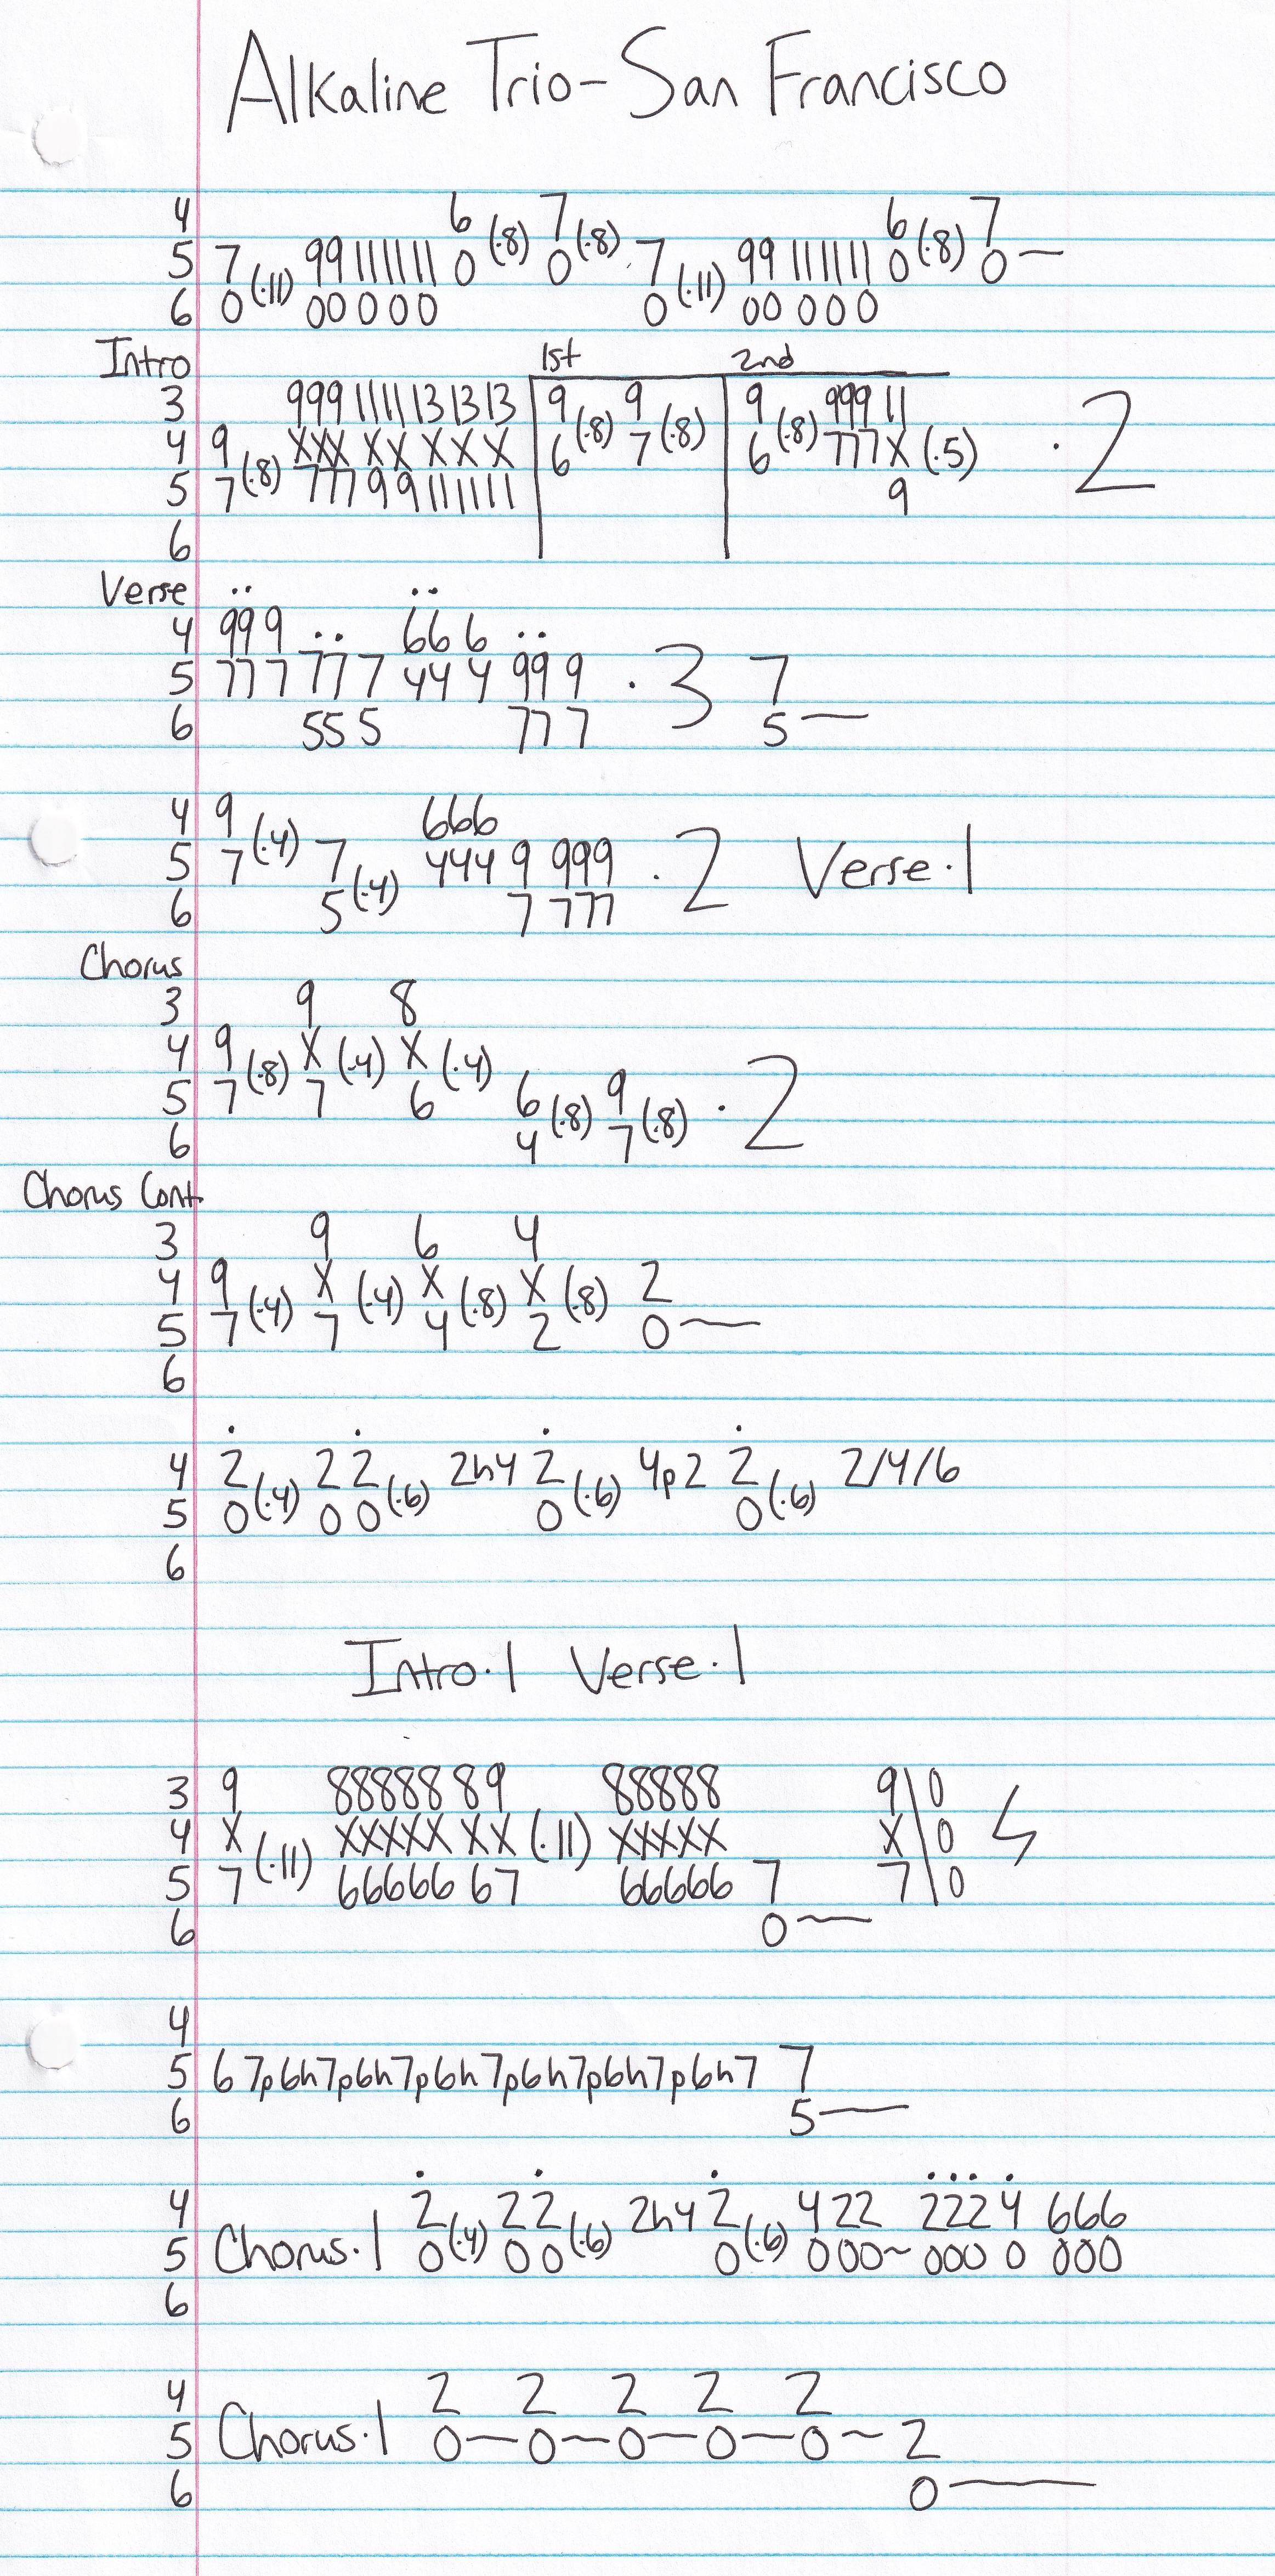 Alkaline Trio - San Francisco
4 6 (·8) 7 (·8) 6 (·8) 7
5 7 (·11) 99 11 11 11 0 0 7 (·11) 99 11 11 11 0 0 —
6 0 00 0 0 0 0 00 0 0 0
Intro 1st 2nd
3 999 11 11 13 13 13 9 9 9 999 11
4 9 (·8) XXX XX X X X 6 (·8) 7 (·8) 6 (·8) 777 X (·5) · 2
5 7 777 9 9 11 11 11 9
6
Verse ·· ··
4 99 9 ·· 66 6 ··
5 77 7 77 7 44 4 99 9 · 3 7
6 55 5 77 7 5 —
4 9 (·4) 666
5 7 7 (·4) 444 9 999 · 2 Verse · 1
6 5 7 777
Chorus
3 9 8
4 9 (·8) X (·4) X (·4)
5 7 7 6 6 (·8) 9 (·8) · 2
6 4 7
Chorus Cont.
3 9 6 4
4 9 (·4) X (·4) X (·8) X (·8) 2
5 7 7 4 2 0 —
6
· · · ·
4 2 (·4) 2 2 (·6) 2h4 2 (·6) 4p2 2 (·6) 2/4/6
5 0 0 0 0 0
6
Intro · 1 Verse · 1
3 9 88888 89 88888 9\0
4 X (·11) XXXXX XX (·11) XXXXX X\0
5 7 66666 67 66666 7 7\0
6 0 —
4
5 6 7p6h7p6h7p6h7p6h7p6h7p6h7 7
6 5 —
· · · ···  ·
4 2 (·4) 2 2 (·6) 2h4 2 (·6) 4 22 222 4 666
5 Chorus · 1 0 0 0 0 0 00 ~ 000 0 000
6
4 2 2 2 2 2
5 Chorus · 1 0 — 0 — 0 — 0 — 0 ~ 2
6 0 —